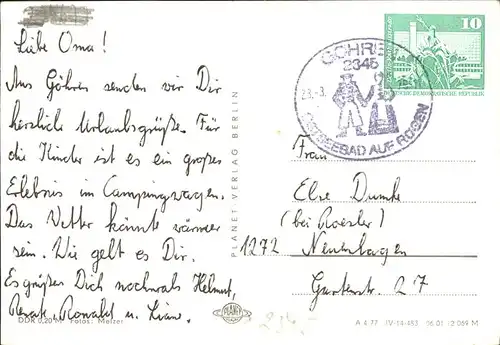 Liebe Oma!
Aus Göhren senden wir Dir
herzliche Urlaubsgrüße. Für
die Kinder ist es ein großes
Erlebnis im Campingwagen.
Das Wetter könnte wärmer
sein. Wie geht es Dir.
Es grüßen Dich nochmals Helmut,
Renate, Ronald u. Liane.
DDR 0,20 M Fotos: Melzer
PLANET VERLAG BERLIN
PLANET
GÖHREN
2345
23.-3.
OSTSEEBAD AUF RÜGEN
10
DEUTSCHE DEMOKRATISCHE REPUBLIK
Frau
Else
(bei Roesler)
1272 Neuenhagen
Gartenstr. 27
A 4 77 IV-14-483 06 01 12 069 M